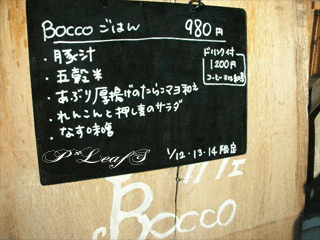 Bocco ごはん 980円
・豚汁
・五穀米
・あぶり厚揚げのたらこマヨ和え
・れんこんと押し麦のサラダ
・なす味噌
ドリンク付
1200円
1/12・13・14限定
P*LeafS
Bocco